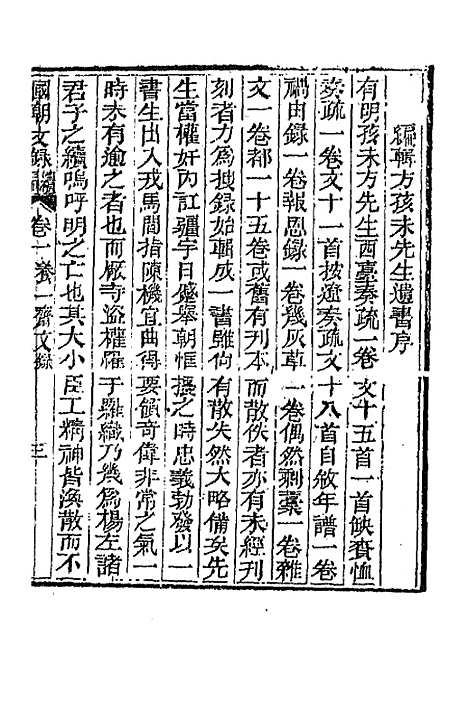 編輯方孩未先生遺書序
有明孩未方先生西臺奏疏一卷文十五首一首缺賚恤
奏疏一卷文十一首按遼奏疏文十八首自敘年譜一卷
禍由錄一卷報恩錄一卷幾灰草一卷偶然剩藁一卷雜
文一卷都一十五卷或舊有刊本而散佚者亦有未經刊
刻者力為搜錄始輯成一書雖尙有散失然大略備矣先
生當權奸內訌疆宇日蹙舉朝恇擾之時忠義勃發以一
書生出入戎馬間指陳機宜曲得要領奇偉非常之氣一
時夲有逾之者也而厥寺盜權羅于羅織乃幾為楊左諸
君子之續嗚呼明之亡也其大小臣工精神皆渙散而不
國朝文錄 卷一養一齋文錄 三